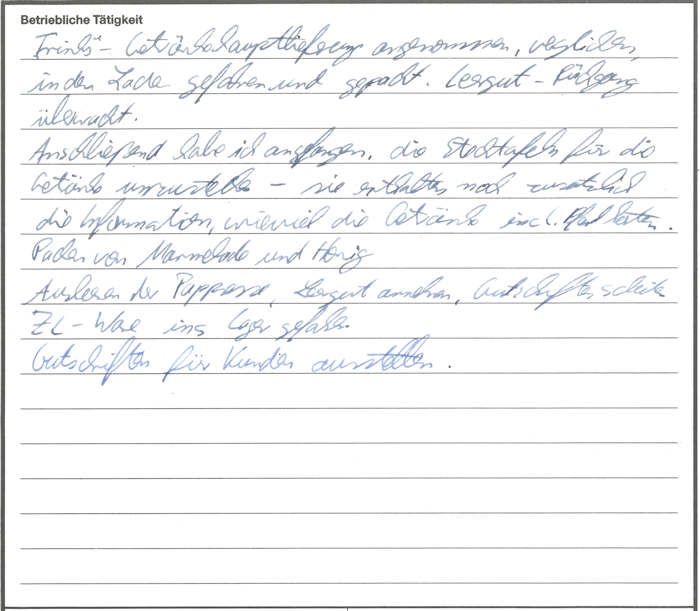 Betriebliche Tätigkeit
"Trinks" - Getränkehauptlieferung angenommen, verglichen,
in den Laden gefahren und gepackt. Leergut - Rückgang
überwacht.
Anschließend habe ich angefangen, die Stecktafeln für die
Getränke umzustellen - sie enthalten noch zusätzlich
die Information, wieviel die Getränke incl. Pfand kosten.
Packen von Marmelade und Honig
Ausleeren der Pappresse, Leergut annehmen, Gutschriften
ZL - Ware ins Lager gefahren
Gutschriften für Kunden ausstellen.